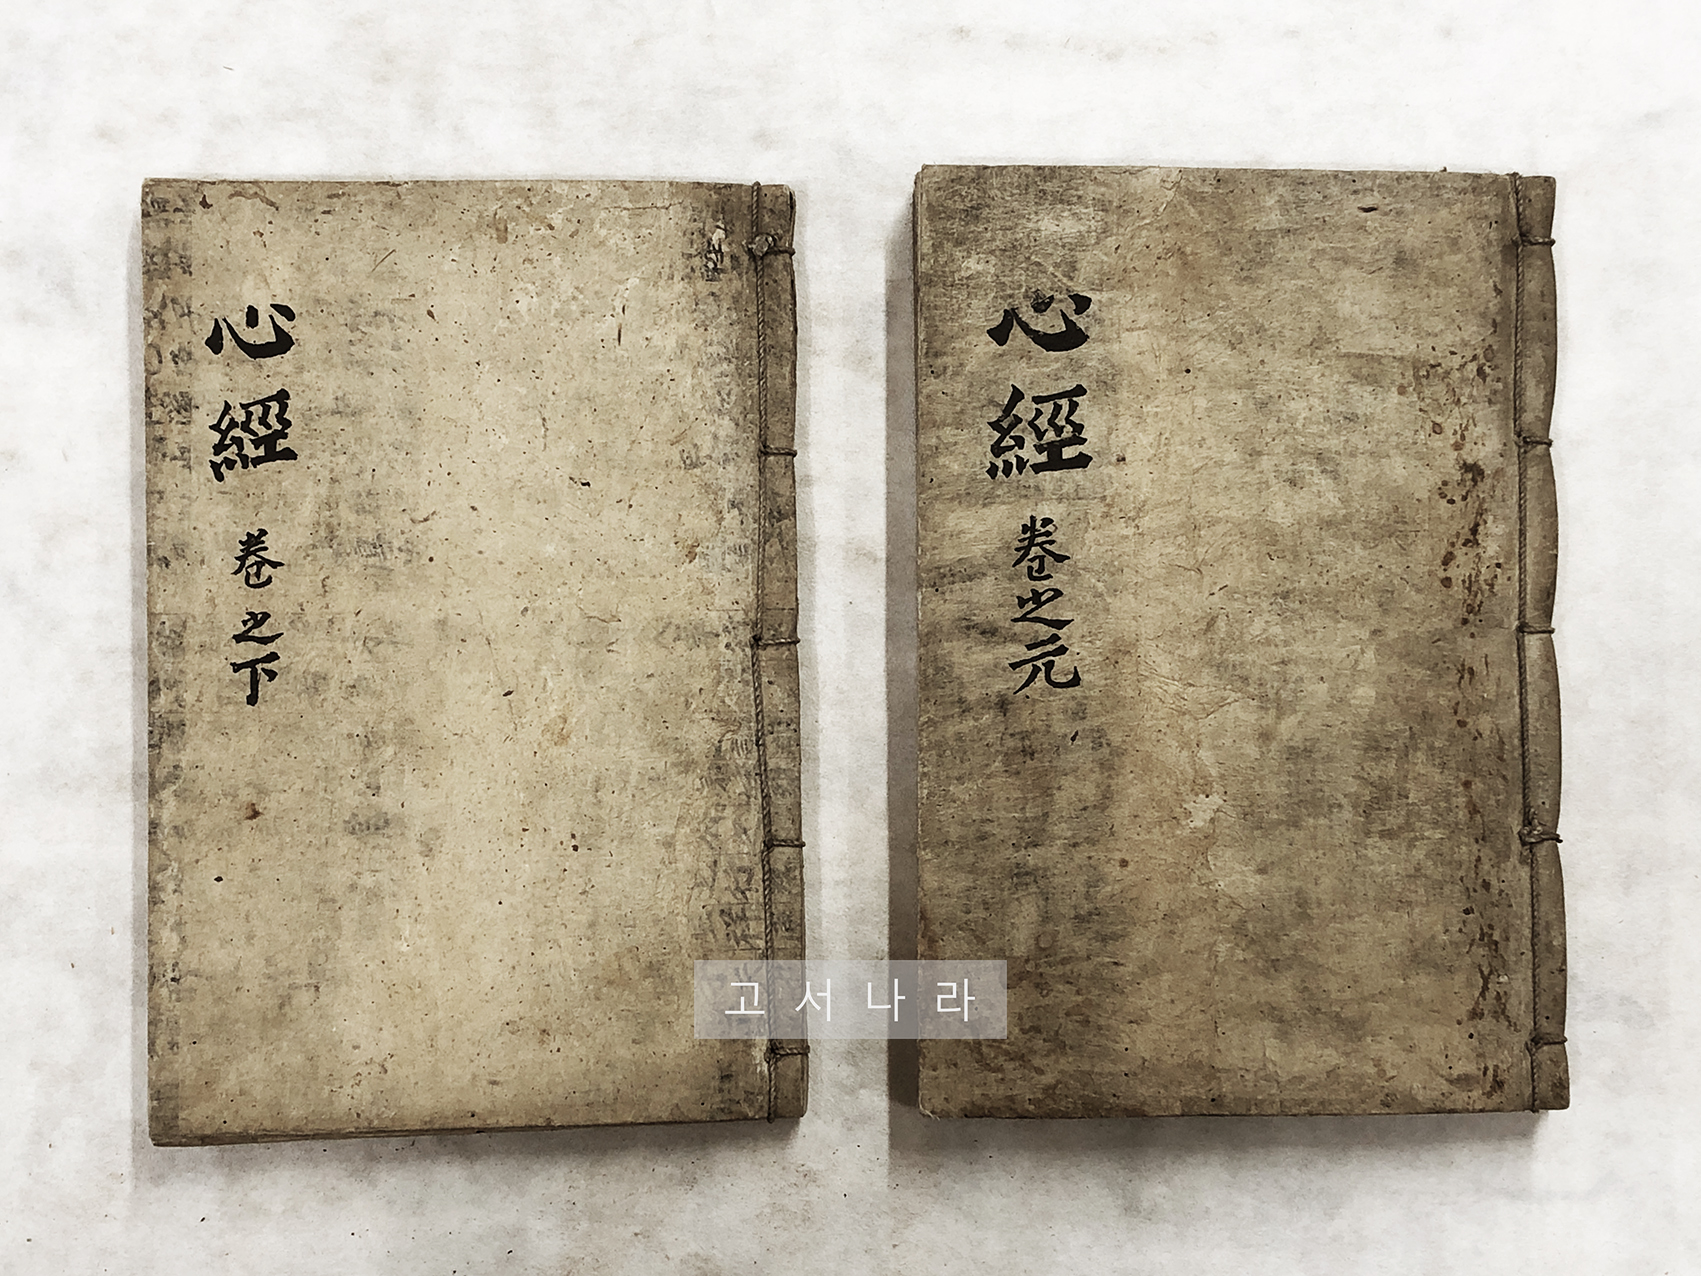 心經 卷之元
心經 卷之下
고서나라